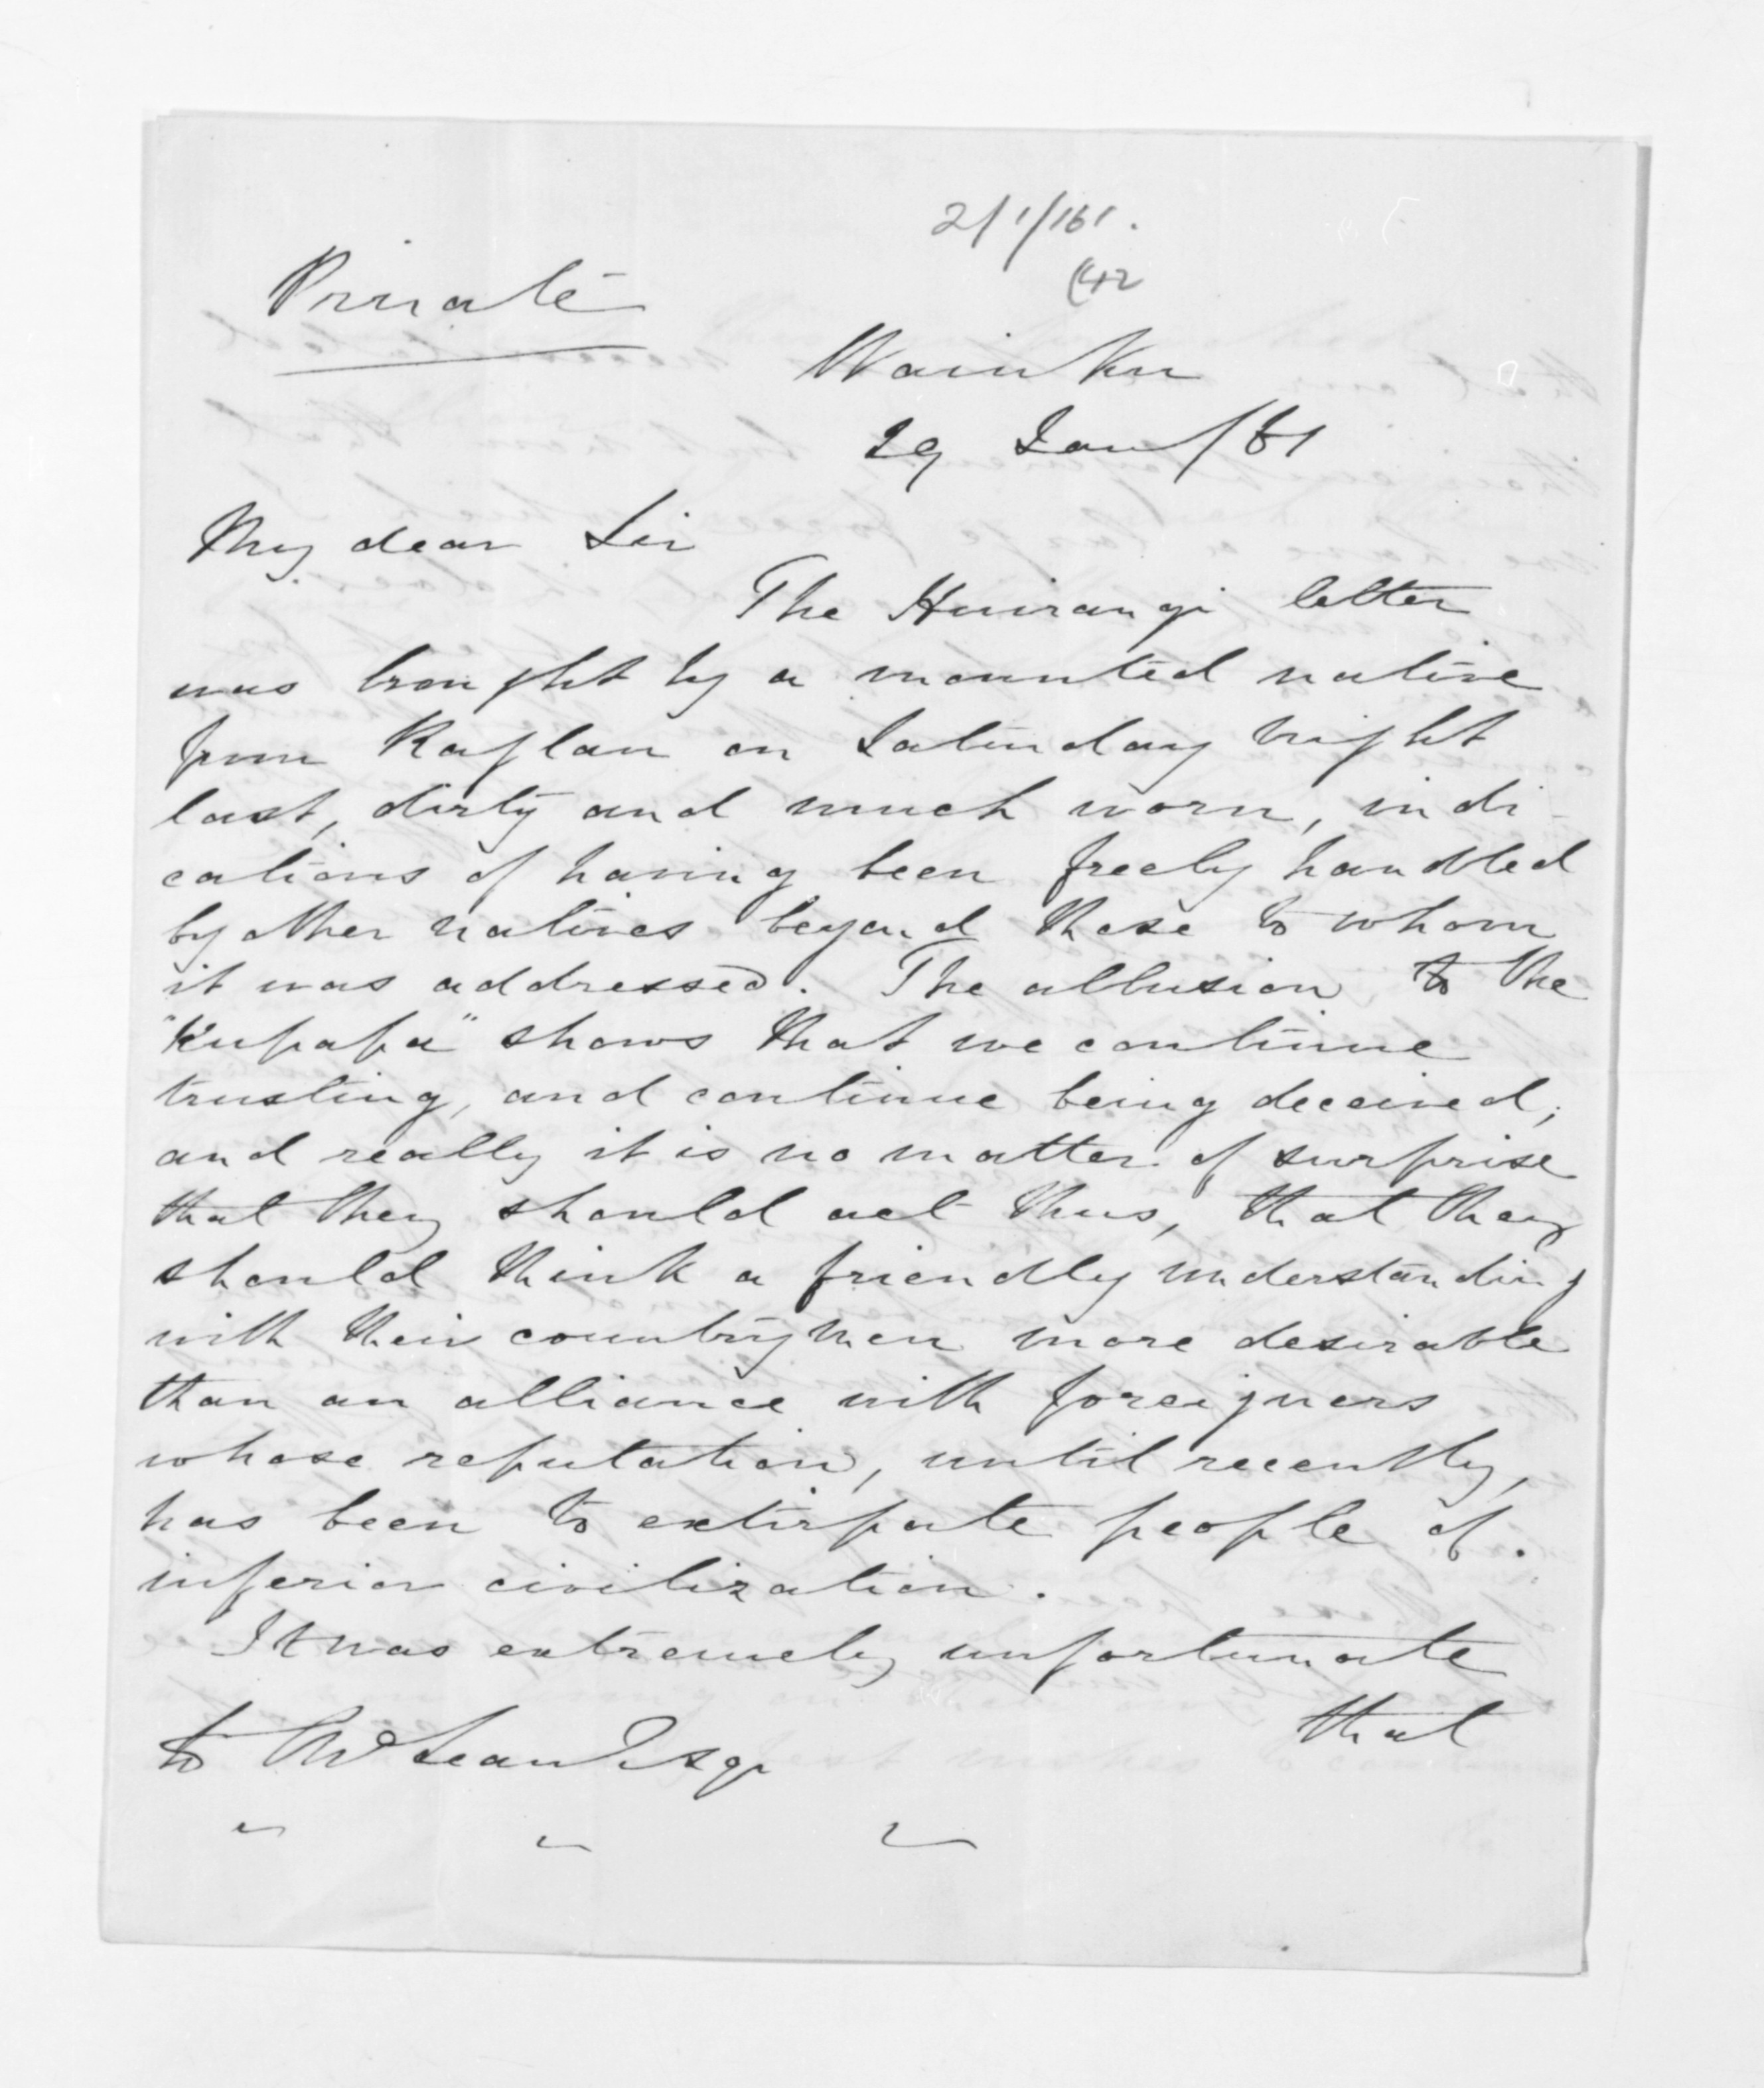 2/1/161.
(42
Private
Waiuku
29 Jan/61
My dear Sir
The Huirangi letter
was brought by a mounted native
from Raglan on Saturday night
last, dirty and much worn, indi-
cations of having been freely handled
by other natives beyond those to whom
it was addressed. The allusion to the
"Kupapa" shows that we continue
trusting, and continue being deceived;
and really it is no matter of surprise
that they should act thus, that they
should think a friendly understanding
with their countrymen more desirable
than an alliance with foreigners
whose reputation, until recently,
has been to extirpate people of
inferior civilization.
It was extremely unfortunate
that
to McLean Esqr